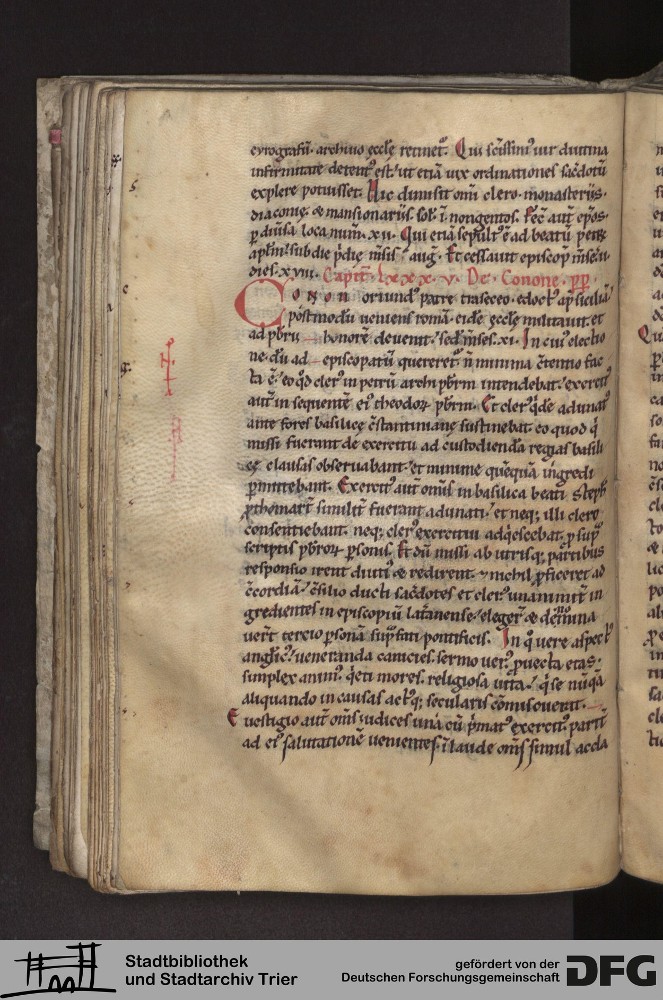 cyrografū. archivo eccle retinet᷒. Qui sc̄issim᷒ uir diutina
infirmitate detent᷒ est. ut etiā uix ordinationes sac̄dotū
explere potuisset. Hic dimisit om̄i clero. monasteriis.
diaconię. & mansionariis. sol. ī. nongentos. Fec̄ aut̄ ep̄os.
ꝑ diūsa loca num̄. xii. Qui etiā sepult᷒ ē ad beatū petrū
ap̄lm̄ sub die p̄die m̄sis auḡ. Et cessauit episcop̄ m̄se. ii
dies. x viii. Capit̄. Lxxx. v. De. Conone. pp.
Conon oriund᷒ patre traseceo. edoct᷒ ap̄ siciliā.
postmodū ueniens romā. eidē eccle militauit. et
ad p̄bri honorē deuenit. sed m̄ses. xi. In cui᷒ electio
ne. dū ad episcopatū quereret᷒. n̄ minima c̄tentio fac
ta ē. eo qd̄ cler᷒ in petrū archip̄brm intendebat. exercit᷒
aut̄ in sequentē ei᷒ theodorū p̄brm. Et cler᷒ qᵈde adunat᷒
ante fores basilicę c̄stantinianę sustinebat. eo quod q̄
missi fuerant de exercitu ad custodiendā regias basili
cę clausas obseruabant. et minime quēquā ingredi
ꝑmittebant. Exercit᷒ aut̄ om̄is in basilica beati steph̄
ꝓthomart̄ similit̄ fuerant adunati. et neq; illi clero
consentiebant. neq; cler᷒ exercitui adq̄escebat. ꝓ sup᷒
scriptis p̄brorū ꝑsonis. Et dū missi ab utrisq; partibus
responsio irent diuti᷒ & redirent. & nichil ꝓficeret ad
c̄cordiā. c̄silio ducti sac̄dotes et cler᷒ unanimit̄ in
gredientes in episcopiū lat̄anense. eleger̄ & denomina
uer̄t tercio ꝑsonā sup̄fati pontificis. In q̄ uere aspect᷒
anglic᷒. ueneranda canicies. sermo uer᷒. ꝓuecta etas.
simplex anim᷒. q̄eti mores. religiosa uita. q̄ se nūqā
aliquando in causas act᷒q; secularis cōmiscuerit.
E uestigio aut̄ om̄s iudices unā cū p̄mat᷒ exercit᷒ parit̄
ad ei᷒ salutationē uenientes. ī laude om̄s simul accla
Stadtbibliothek
und Stadtarchiv Trier
gefördert von der
Deutschen Forschungsgemeinschaft
DFG